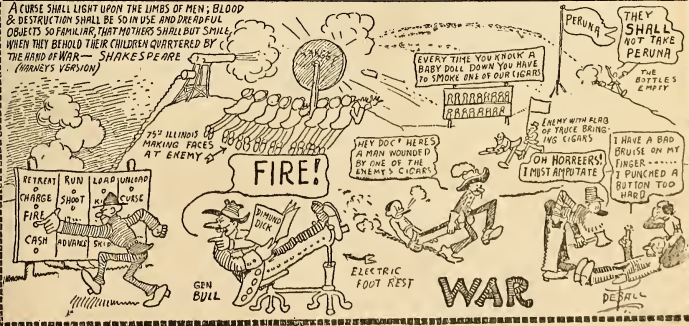 A CURSE SHALL LIGHT UPON THE LIMBS OF MEN; BLOOD
& DESTRUCTION SHALL BE SO IN USE AND DREADFUL
OBJECTS SO FAMILIAR, THAT MOTHERS SHALL BUT SMILE,
WHEN THEY BEHOLD THEIR CHILDREN QUARTERED BY
THE HAND OF WAR— SHAKESPEARE
(HARNEYS VERSION)
75ST ILLINOIS
MAKING FACES
AT ENEMY
EVERY TIME YOU KNOCK A
BABY DOLL DOWN YOU HAVE
TO SMOKE ONE OF OUR CIGARS
PERUNA
THEY
SHALL
NOT TAKE
PERUNA
THE
BOTTLES
EMPTY
ENEMY WITH FLAG
OF TRUCE BRING-
ING CIGARS
RETREAT
RUN
LOAD
UNLOAD
CHARGE
SHOOT
CURSE
FIRE
CASH
ADVANCE
SKID
FIRE!
DIMUND
DICK
GEN
BULL
ELECTRIC
FOOT REST
HEY DOC! HERES
A MAN WOUNDED
BY ONE OF THE
ENEMY'S CIGARS
OH HORREERS!
I MUST AMPUTATE
I HAVE A BAD
BRUISE ON MY
FINGER ------
I PUNCHED A
BUTTON TOO
HARD
WAR